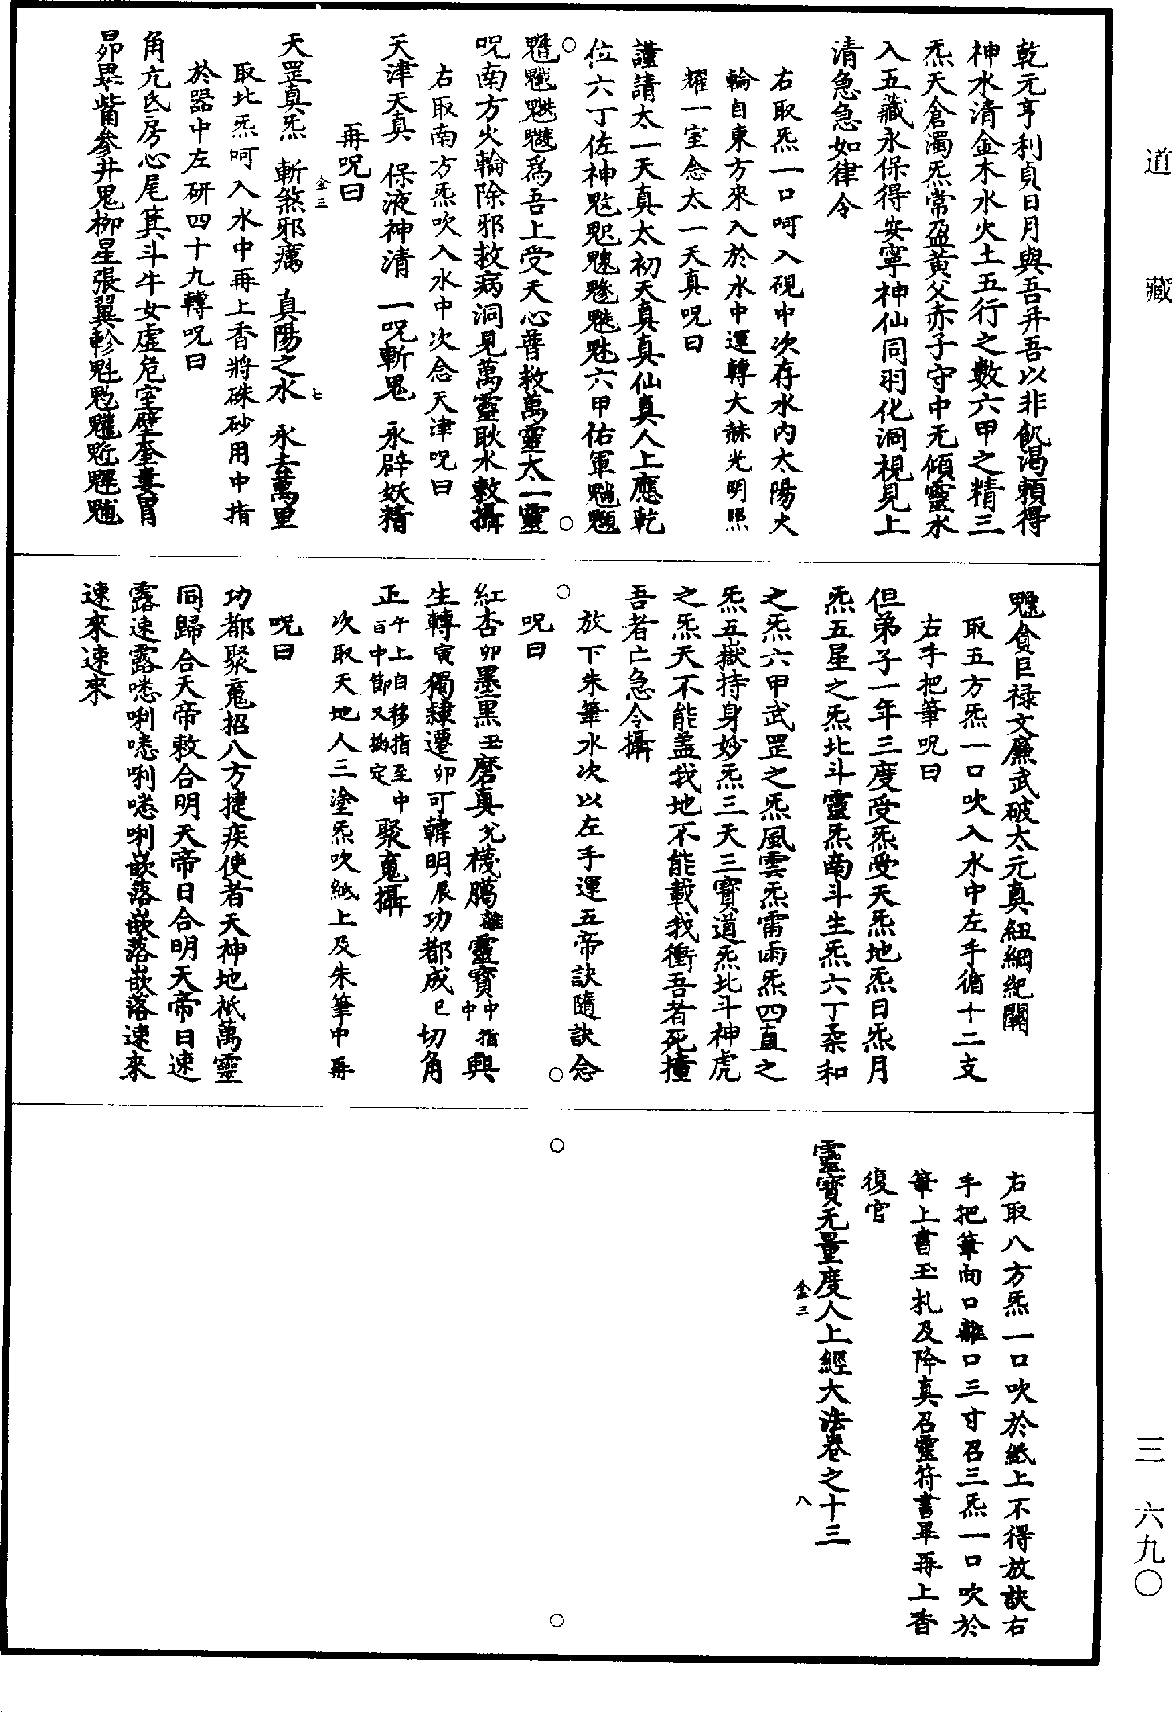 道藏
三 六九〇
乾元亨利貞日月與吾并吾以非飢渴賴得
神水清金木水火土五行之數六甲之精三
炁天倉濁炁常盈黃父赤子守中无傾靈水
入五藏永保得安寧神仙同羽化洞視見上
清急急如律令
右取炁一口呵入硯中次存水內太陽火
輪自東方來入於水中運轉大赫光明照
耀一室念太一天真呪曰
謹請太一天真太初天真真仙真人上應乾
位六丁佐神六甲佑軍
為吾上受天心普救萬靈太一靈
呪南方火輪除邪救病洞見萬靈耿水敕攝
右取南方炁吹入水中次念天津呪曰
天津天真 保液神清 一呪斬鬼 永辟妖精
再呪曰
天罡真炁 斬煞邪癘 真陽之水 永去萬里
金三
七
取北炁呵入水中再上香將硃砂用中指
於器中左研四十九轉呪曰
角亢氐房心尾箕斗牛女虛危室壁奎婁胃
昴畢觜參井鬼柳星張翼軫魁𩲃𩵄𩲓魓
魒貪巨祿文廉武破太元真紐綱紀關
取五方炁一口吹入水中左手循十二支
右手把筆呪曰
但弟子一年三度受炁受天炁地炁日炁月
炁五星之炁北斗靈炁南斗生炁六丁柔和
之炁六甲武罡之炁風雲炁雷雨炁四直之
炁五嶽持身妙炁三天三寶道炁北斗神虎
之炁天不能蓋我地不能載我衝吾者死撞
吾者亡急令攝
放下朱筆水次以左手運五帝訣隨訣念
呪曰
紅杏卯墨黑丑磨真兌機騰離靈寶中指中興
生轉寅獨隸遷卯可韓明辰功都成巳切角
正午上自移指至中百中節又掐定聚䰟攝
次取天地人三塗炁吹紙上及朱筆中再
呪曰
功都聚䰟招八方捷疾使者天神地祇萬靈
同歸合天帝敕合明天帝日合明天帝日速
露速露㗭唎㗭唎㗭唎嵌落嵌落嵌落速來
速來速來
右取八方炁一口吹於紙上不得放訣右
手把筆向口離口三寸召三炁一口吹於
筆上書玉札及降真召靈符書畢再上香
復官
靈寶无量度人上經大法卷之十三
金三
八